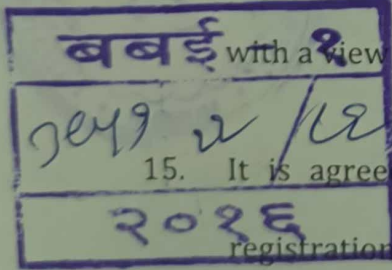 बबई १ with a view
15. It is agree
२०१६
registration